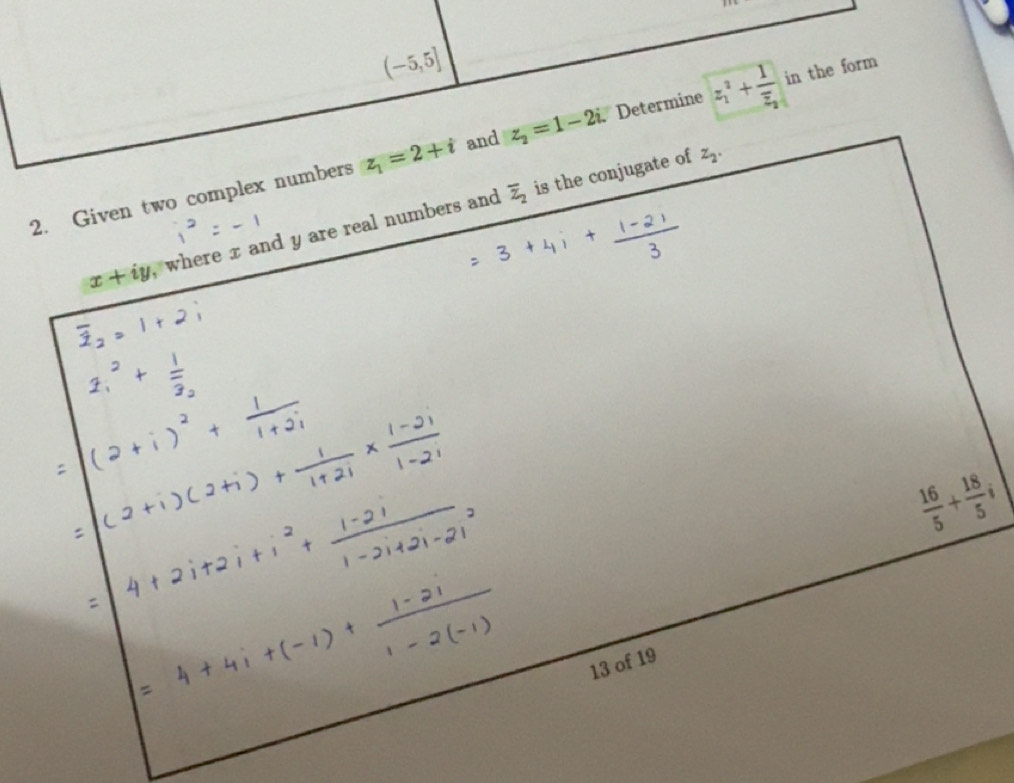 (−5,5]
2. Given two complex numbers z₁ = 2 + i and z₂ = 1 − 2i. Determine z₁² + 1/z̅₂ in the form
x + iy, where x and y are real numbers and z̅₂ is the conjugate of z₂.
i² = -1
z̅₂ = 1 + 2i
z₁² + 1/z̅₂
= (2+i)² + 1/(1+2i)
= (2+i)(2+i) + 1/(1+2i) × (1-2i)/(1-2i)
= 4 + 2i + 2i + i² + (1-2i)/(1-2i+2i-2i²)
= 4 + 4i + (-1) + (1-2i)/(1-2(-1))
= 3 + 4i + (1-2i)/3
16/5 + 18/5 i
13 of 19